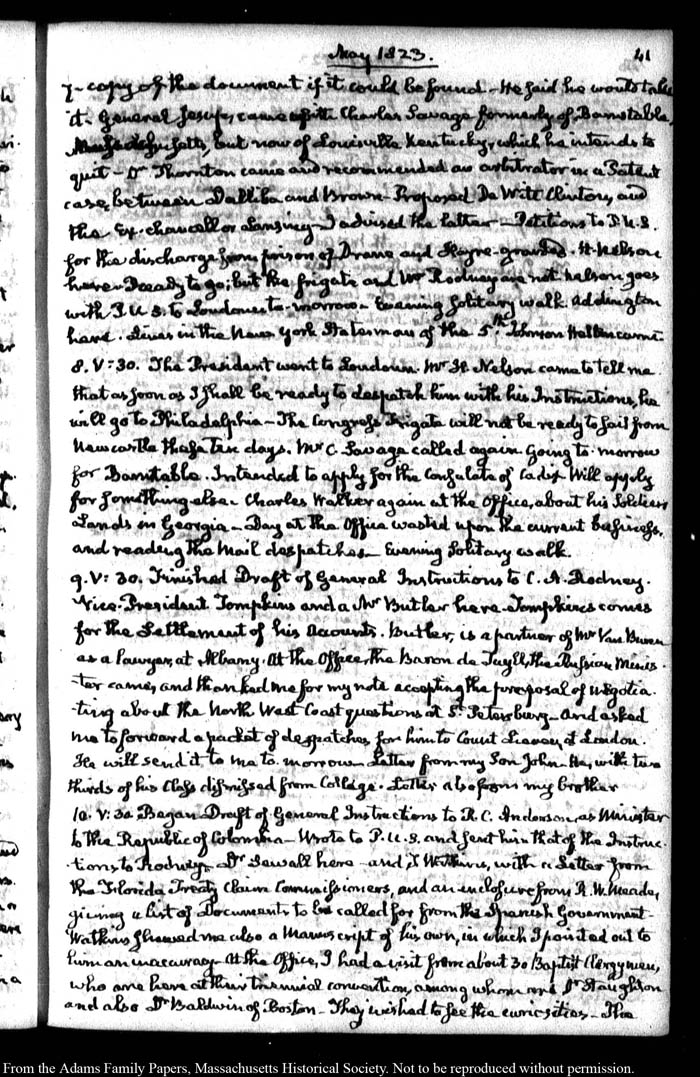 May 1823.
41
7. copy of the document if it could be found - He said he would take
it. General Jesup, came with Charles Savage formerly of, Barnstable,
Massachusetts, but now of Louisville Kentucky, which he intends to
quit - Dr. Thornton came and recommended an arbitrator in a Patent
case, between Dalliba and Brown. Proposed De Witt Clinton, and
the Ex. chancellor Lansing - I advised the latter - Petitions to P.U.S.
for the discharge from prison of Drane and Hayne - granted. H. Nelson
here. Ready to go; but the frigate and Mr Rodney are not. Nelson goes
with P.U.S. to Loudoun to-morrow. Evening solitary walk. Addington
here. Lines in the New York Statesman of the 5th Johnson Hellen came.
8. V: 30. The President went to Loudoun. Mr H. Nelson came to tell me
that as soon as I shall be ready to despatch him with his Instructions, he
will go to Philadelphia - The Congress frigate will not be ready to sail from
Newcastle these ten days. Mr C. Savage called again going to-morrow
for Barnstable. Intended to apply for the Consulate of Cadiz. Will apply
for something else. Charles Walker again at the Office, about his Soldiers
Lands in Georgia - Day at the Office wasted upon the current business,
and reading the Mail despatches - Evening solitary walk.
9. V: 30. Finished Draft of General Instructions to C. A. Rodney.
Vice-President Tompkins and a Mr Butler here. Tompkins comes
for the Settlement of his accounts. Butler, is a partner of Mr Van Buren
as a lawyer, at Albany. At the Office, the Baron de Tuyll, the Russian Minis-
ter came, and thanked me for my note accepting the proposal of negotia-
-ting about the North West Coast questions at St. Petersburg - And asked
me to forward a packet of despatches for him to Count Lieven at London.
He will send it to me to-morrow. Letter from my Son John. He, with two
thirds of his Class dismissed from College. Letter also from my brother
10. V: 30 Began Draft of General Instructions to R. C. Anderson, as Minister
to the Republic of Colombia - Wrote to P.U.S. and sent him that of the Instruc-
-tions to Rodney. Dr Sewall here - and T. Watkins, with a Letter from
the Florida Treaty Claim Commissioners, and an inclosure from R. W. Meade,
giving a list of Documents to be called for from the Spanish Government.
Watkins shewed me also a Manuscript of his own, in which I pointed out to
him an inaccuracy - At the Office, I had a visit from about 30 Baptist Clergymen,
who are here at their triennial convention, among whom were Dr Staughton
and also Dr Baldwin of Boston - They wished to see the curiosities - The
From the Adams Family Papers, Massachusetts Historical Society. Not to be reproduced without permission.